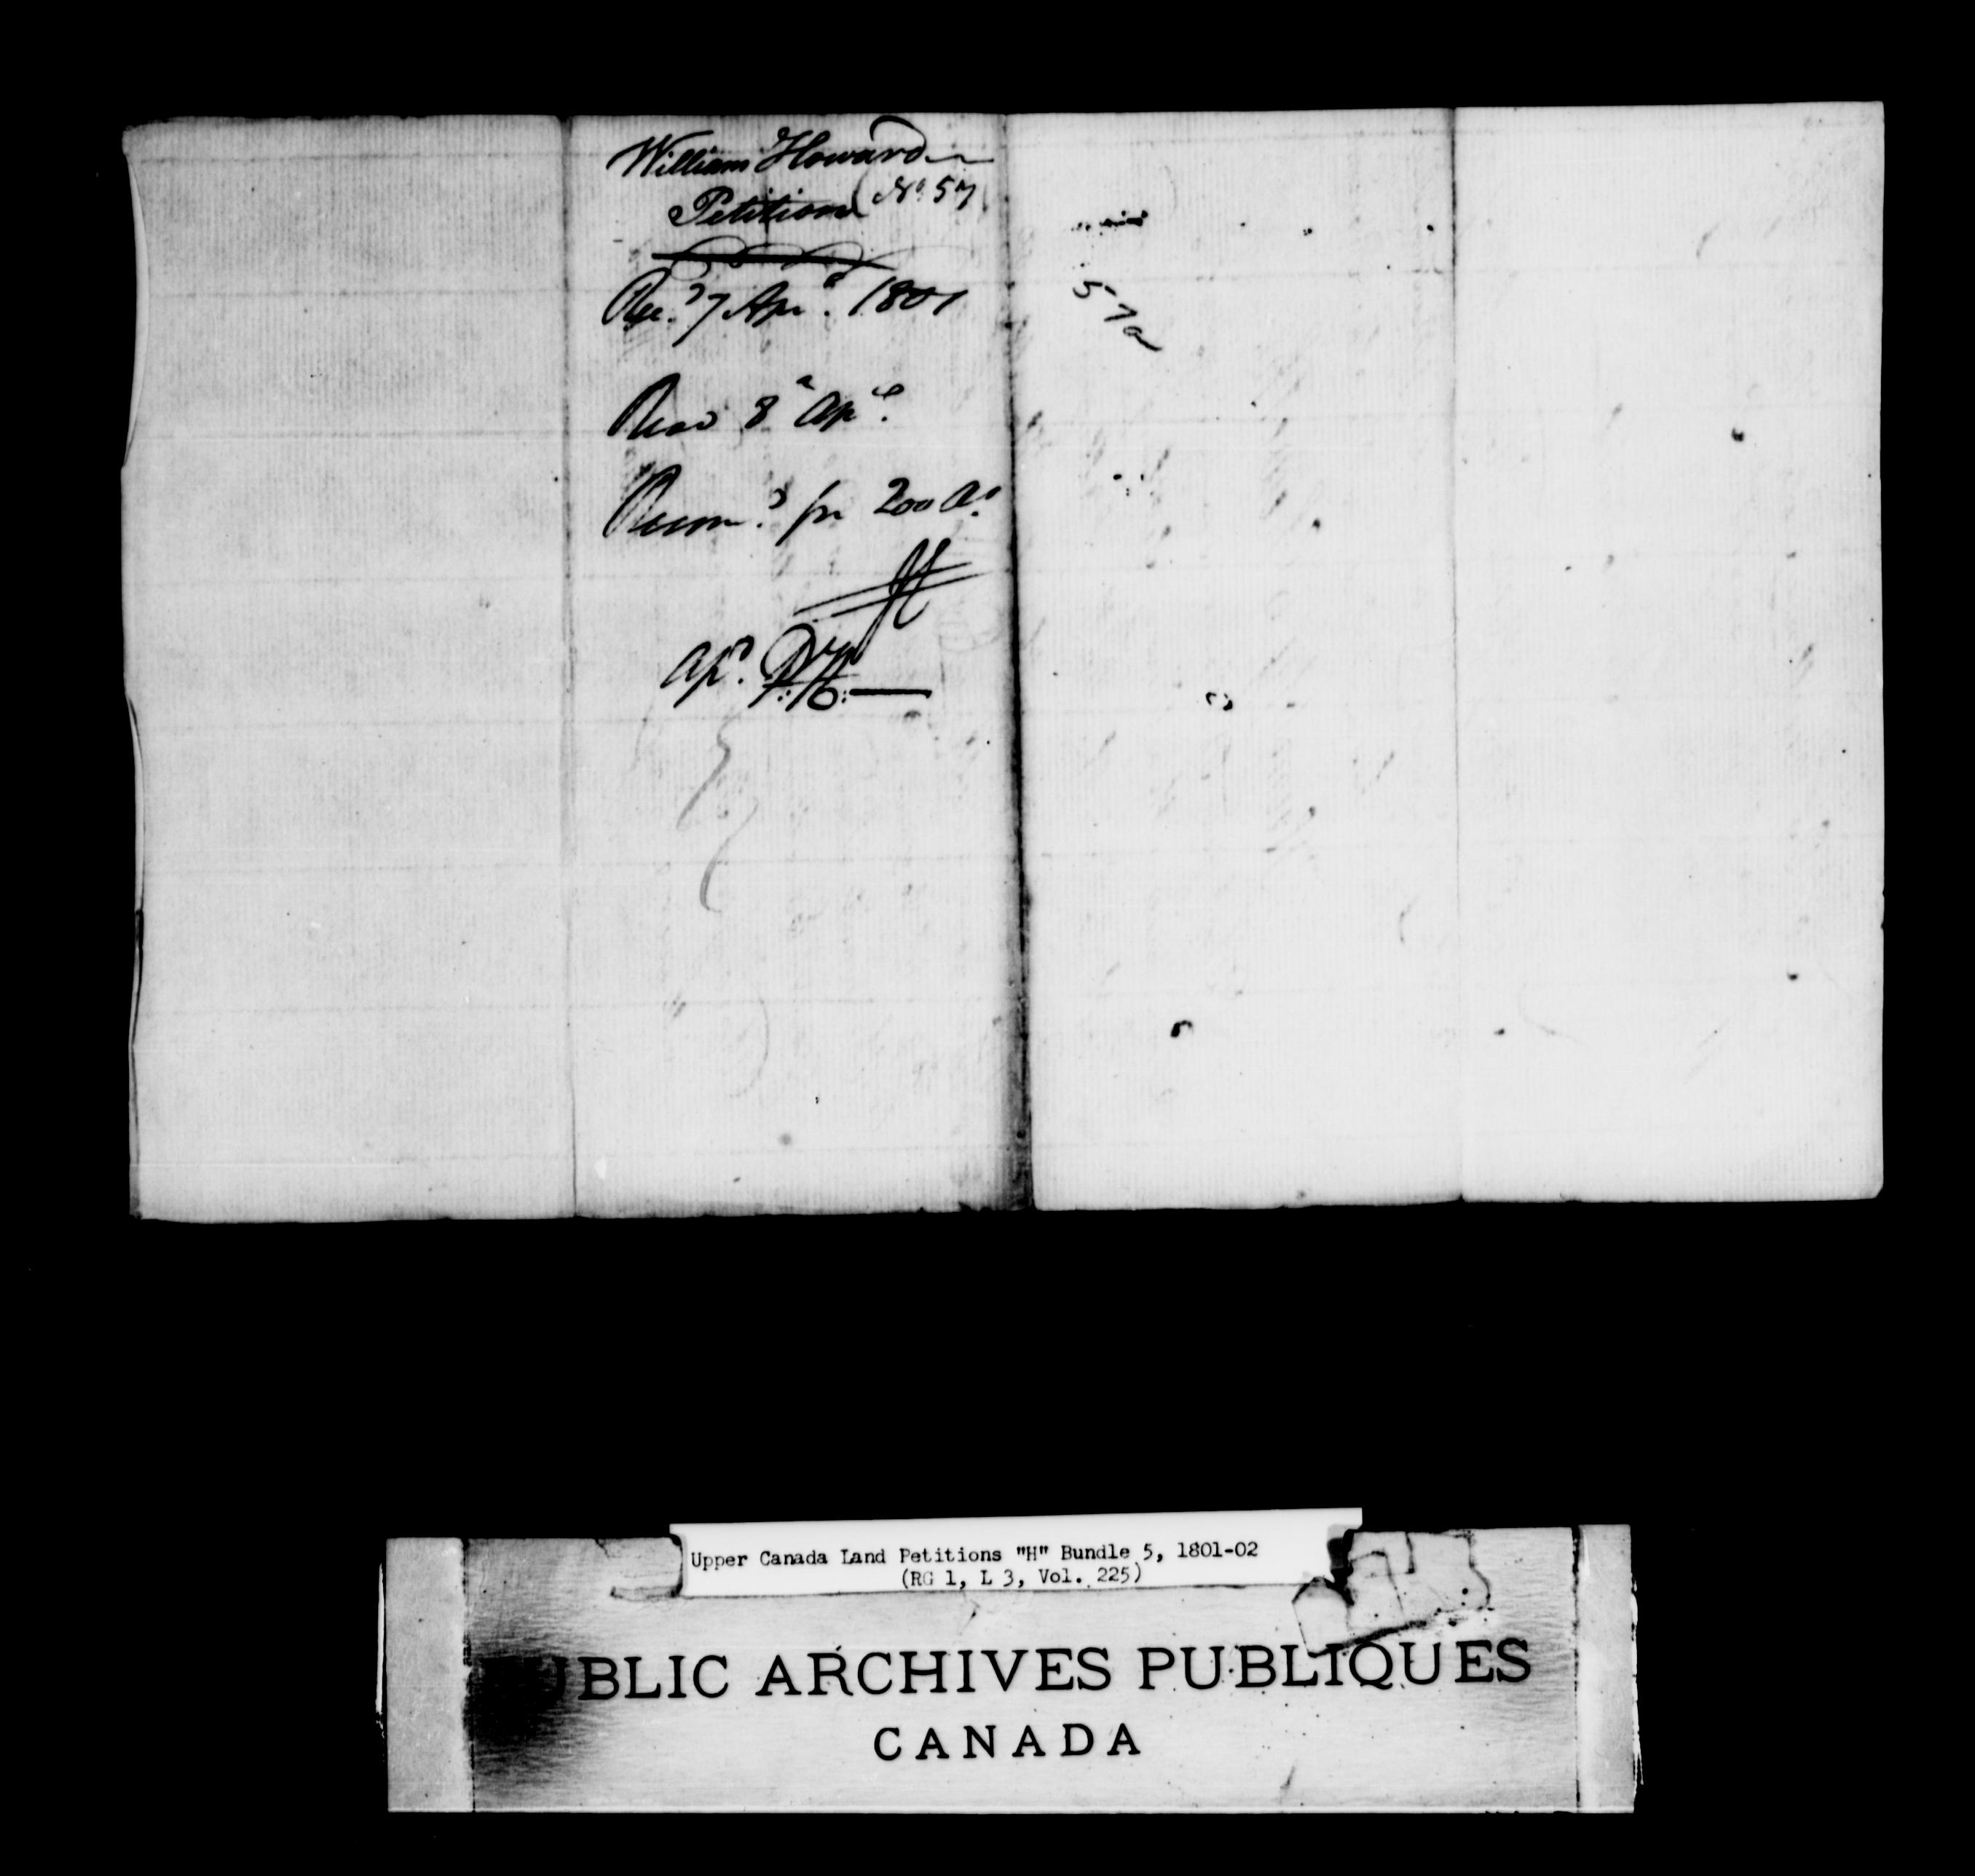 William Howard
Petition No. 57
Recd 7 Apl. 1801
Read 8th Apl.
Recomd for 200 As.
Apd. P.H.
57a
Upper Canada Land Petitions "H" Bundle 5, 1801-02
(RG 1, L 3, Vol. 225)
PUBLIC ARCHIVES PUBLIQUES
CANADA